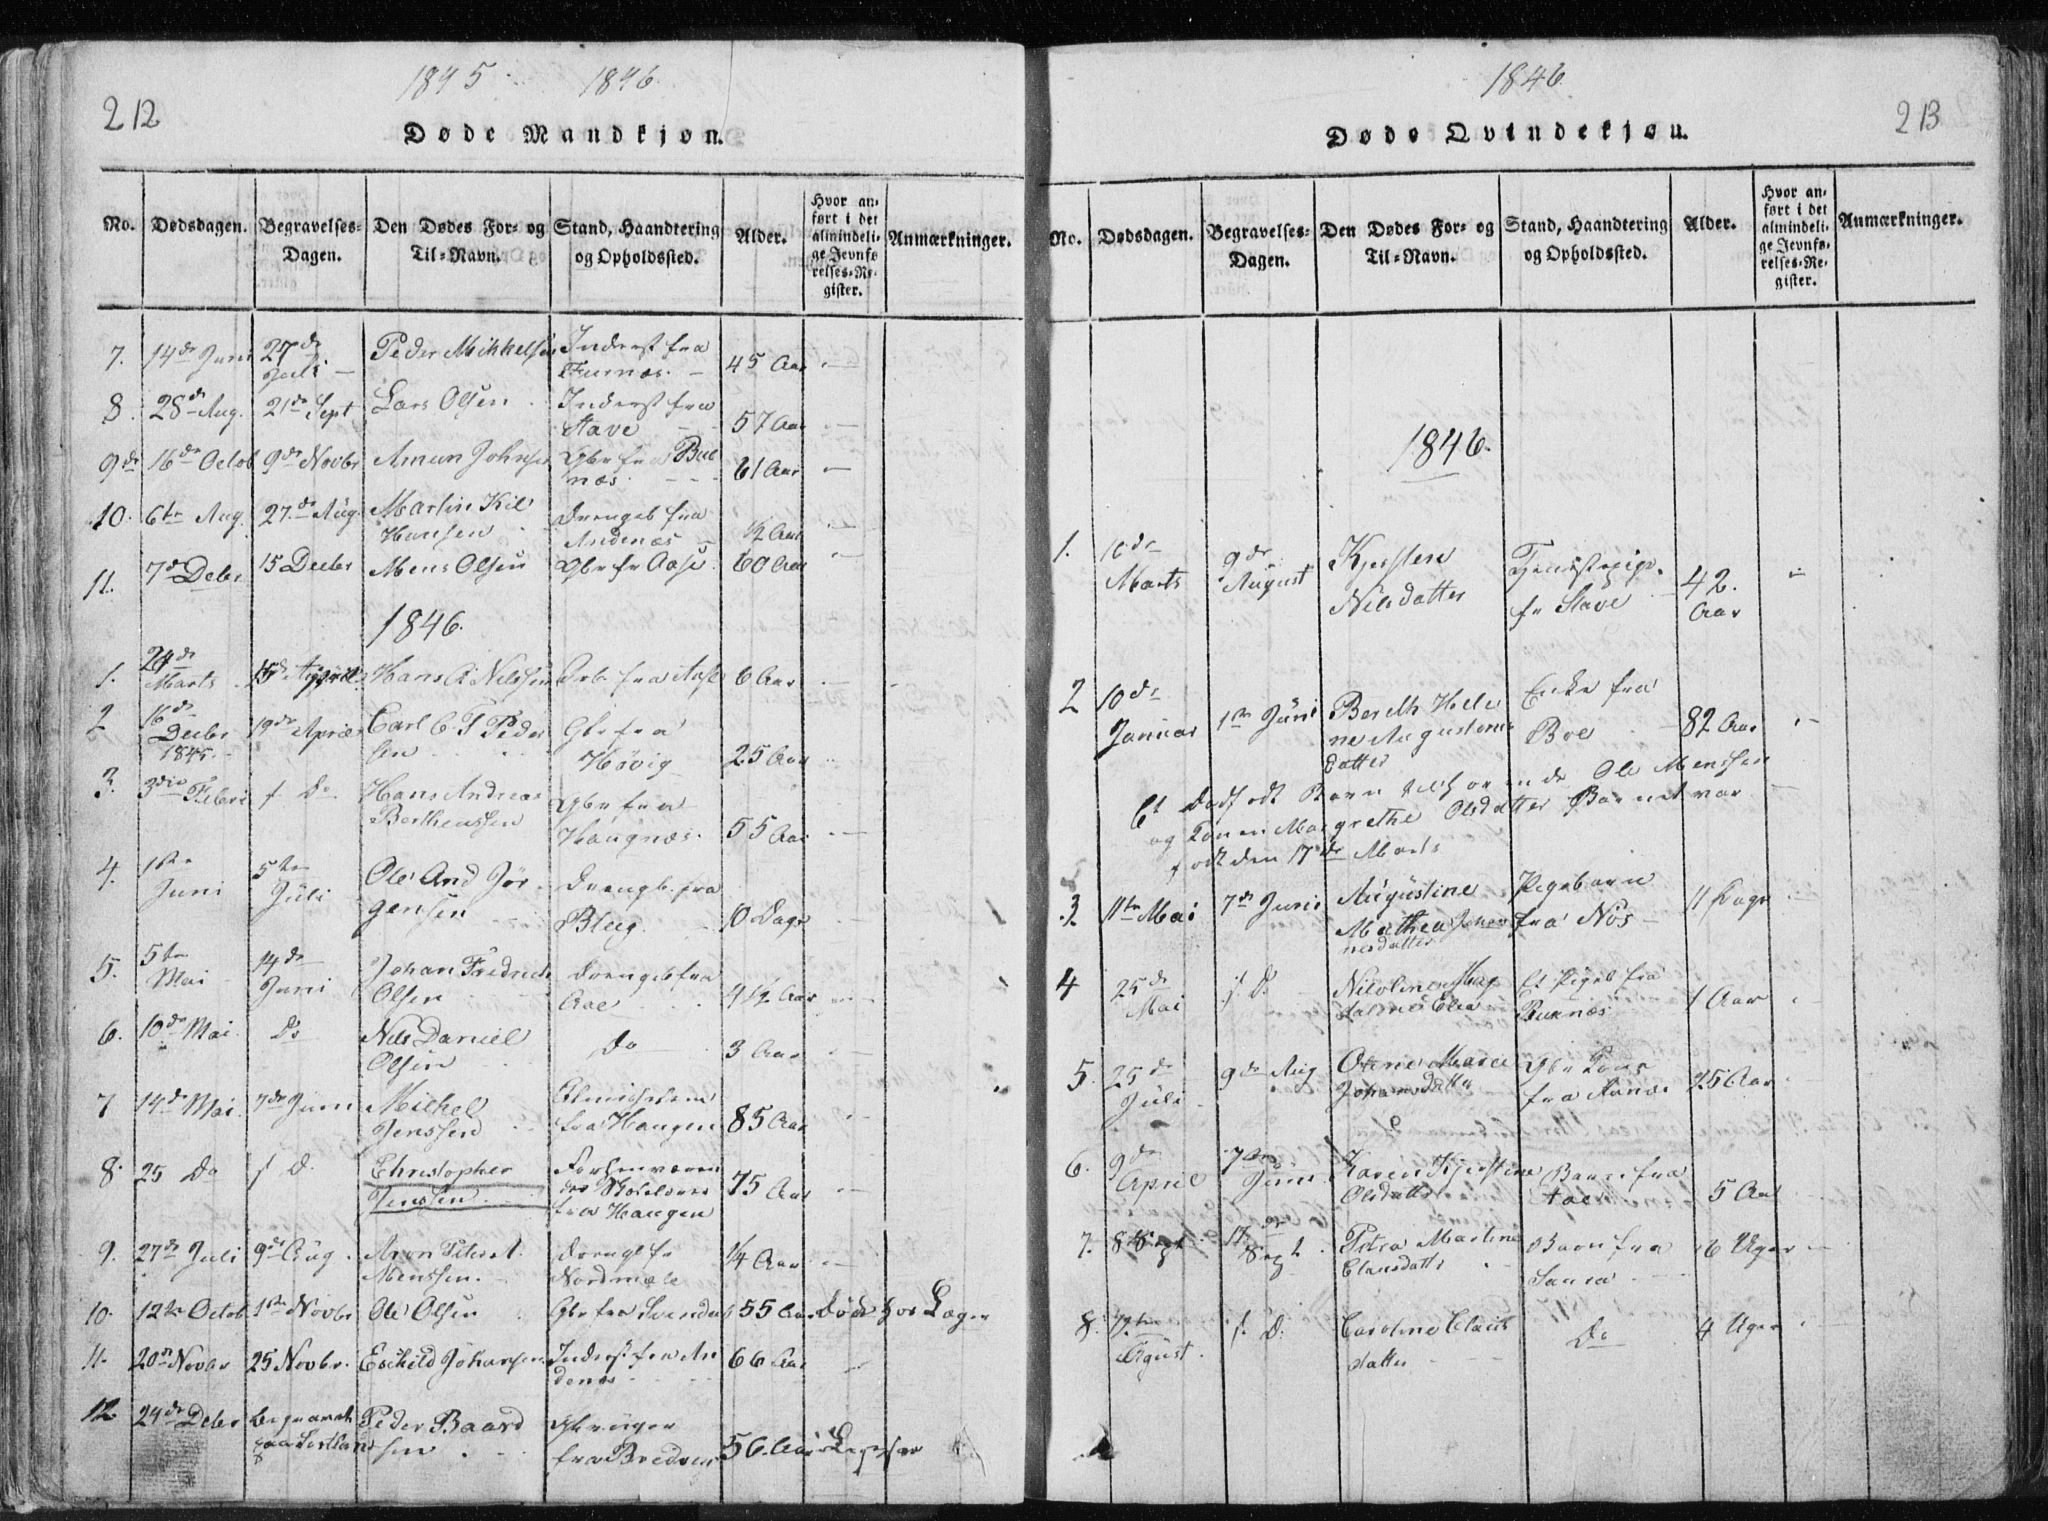 212
1845
1846
Døde Mandkjøn.
No.
Dødsdagen.
Begravelses-Dagen.
Den Dødes For- og Til-Navn.
Stand, Haandtering og Opholdssted.
Alder.
Hvor anført i det almindelige Jevnførelses-Register.
Anmærkninger.
7. 14de Juni 27de Juli Peder Mikkelsen Inderst fra 45 Aar
8. 28de Aug. 21de Sept Lars Olsen Inderst fra Stave 57 Aar
9de 16de Octob 9de Novbr Amun Johnsen Gbr fra Buenæs 61 Aar
10. 6te Aug. 27de Aug. Martin Kil Hansen Drengeb fra Andenæs 1/2 Aar
11. 7de Debr 15 Decbr Mens Olsen Gbr fr Aase 60 Aar
1846.
1. 24de Marts 15de April Hans A Nilssen fra Aase 6 Aar
2 16de Decbr 1845 19de April Carl C T Pedersen Gbr fra Høvig 25 Aar
3. 3die Febr f Do Hans Andreas Berthenssen Gbr fra Haugnæs 55 Aar
4. 1ste Juni 5te Juli Ole And Jørgensen Drengb. fra Bleig 10 Dage
5. 5te Mai 14de Juni Johan Fredrich Olsen Drengeb fra Aae 4 1/2 Aar
6. 10de Mai Do Nils Daniel Olsen Do 3 Aar
7 14de Mai. 7de Juni Michel Jenssen fra Haugen 85 Aar
8. 25 Do f D. Christopher Jenssen fra Haugen 75 Aar
9. 27de Juli 9de Aug. Aron Peter Menssen Drengb fr Nordmæle 1/4 Aar
10. 12te Octob 1ste Novbr Ole Olsen Gbr fra 55 Aar Døde hos Lægen
11. 20de Novbr 25 Novbr. Eschild Johansen Inderst fra Andenæs 66 Aar
12 24de Debr begravet paa Sortland Peder Baardsen fra 56 Aar
213
1846
Døde Qvindekjøn.
No.
Dødsdagen.
Begravelses-Dagen.
Den Dødes For- og Til-Navn.
Stand, Haandtering og Opholdssted.
Alder.
Hvor anført i det almindelige Jevnførelses-Register.
Anmærkninger.
1846.
1. 10de Marts 9de August Kjersten Nilsdatter Tjenestepige fr Stave 42 Aar
2 10de Januar 1ste Juni Bereth Helene Augustinusdatter Enke fra Boe 82 Aar
Et Dødfødt Barn Ole Menssen
og Konen Margrethe Olsdatter Barnet var
født den 17de Marts
3. 11te Mai 7de Juni Augustine Mathea Johannesdatter Pigebarn fra Nös 11 Dage
4 25de Mai f. D. Nicoline Et Pigeb fra Buknæs 1 Aar
5. 25de Juli 9de Aug Marie Johansdatter Gbr Kone fra 25 Aar
6. 9de April 7de Juni Karen Kjerstine Olsdatter Barn fra Aae 5 Aar
7. 8 Sept 17de Sept Petra Martine Clausdatter Barn fra 6 Uger
8. August. f. D. Caroline Clausdatter Do 4 Uger